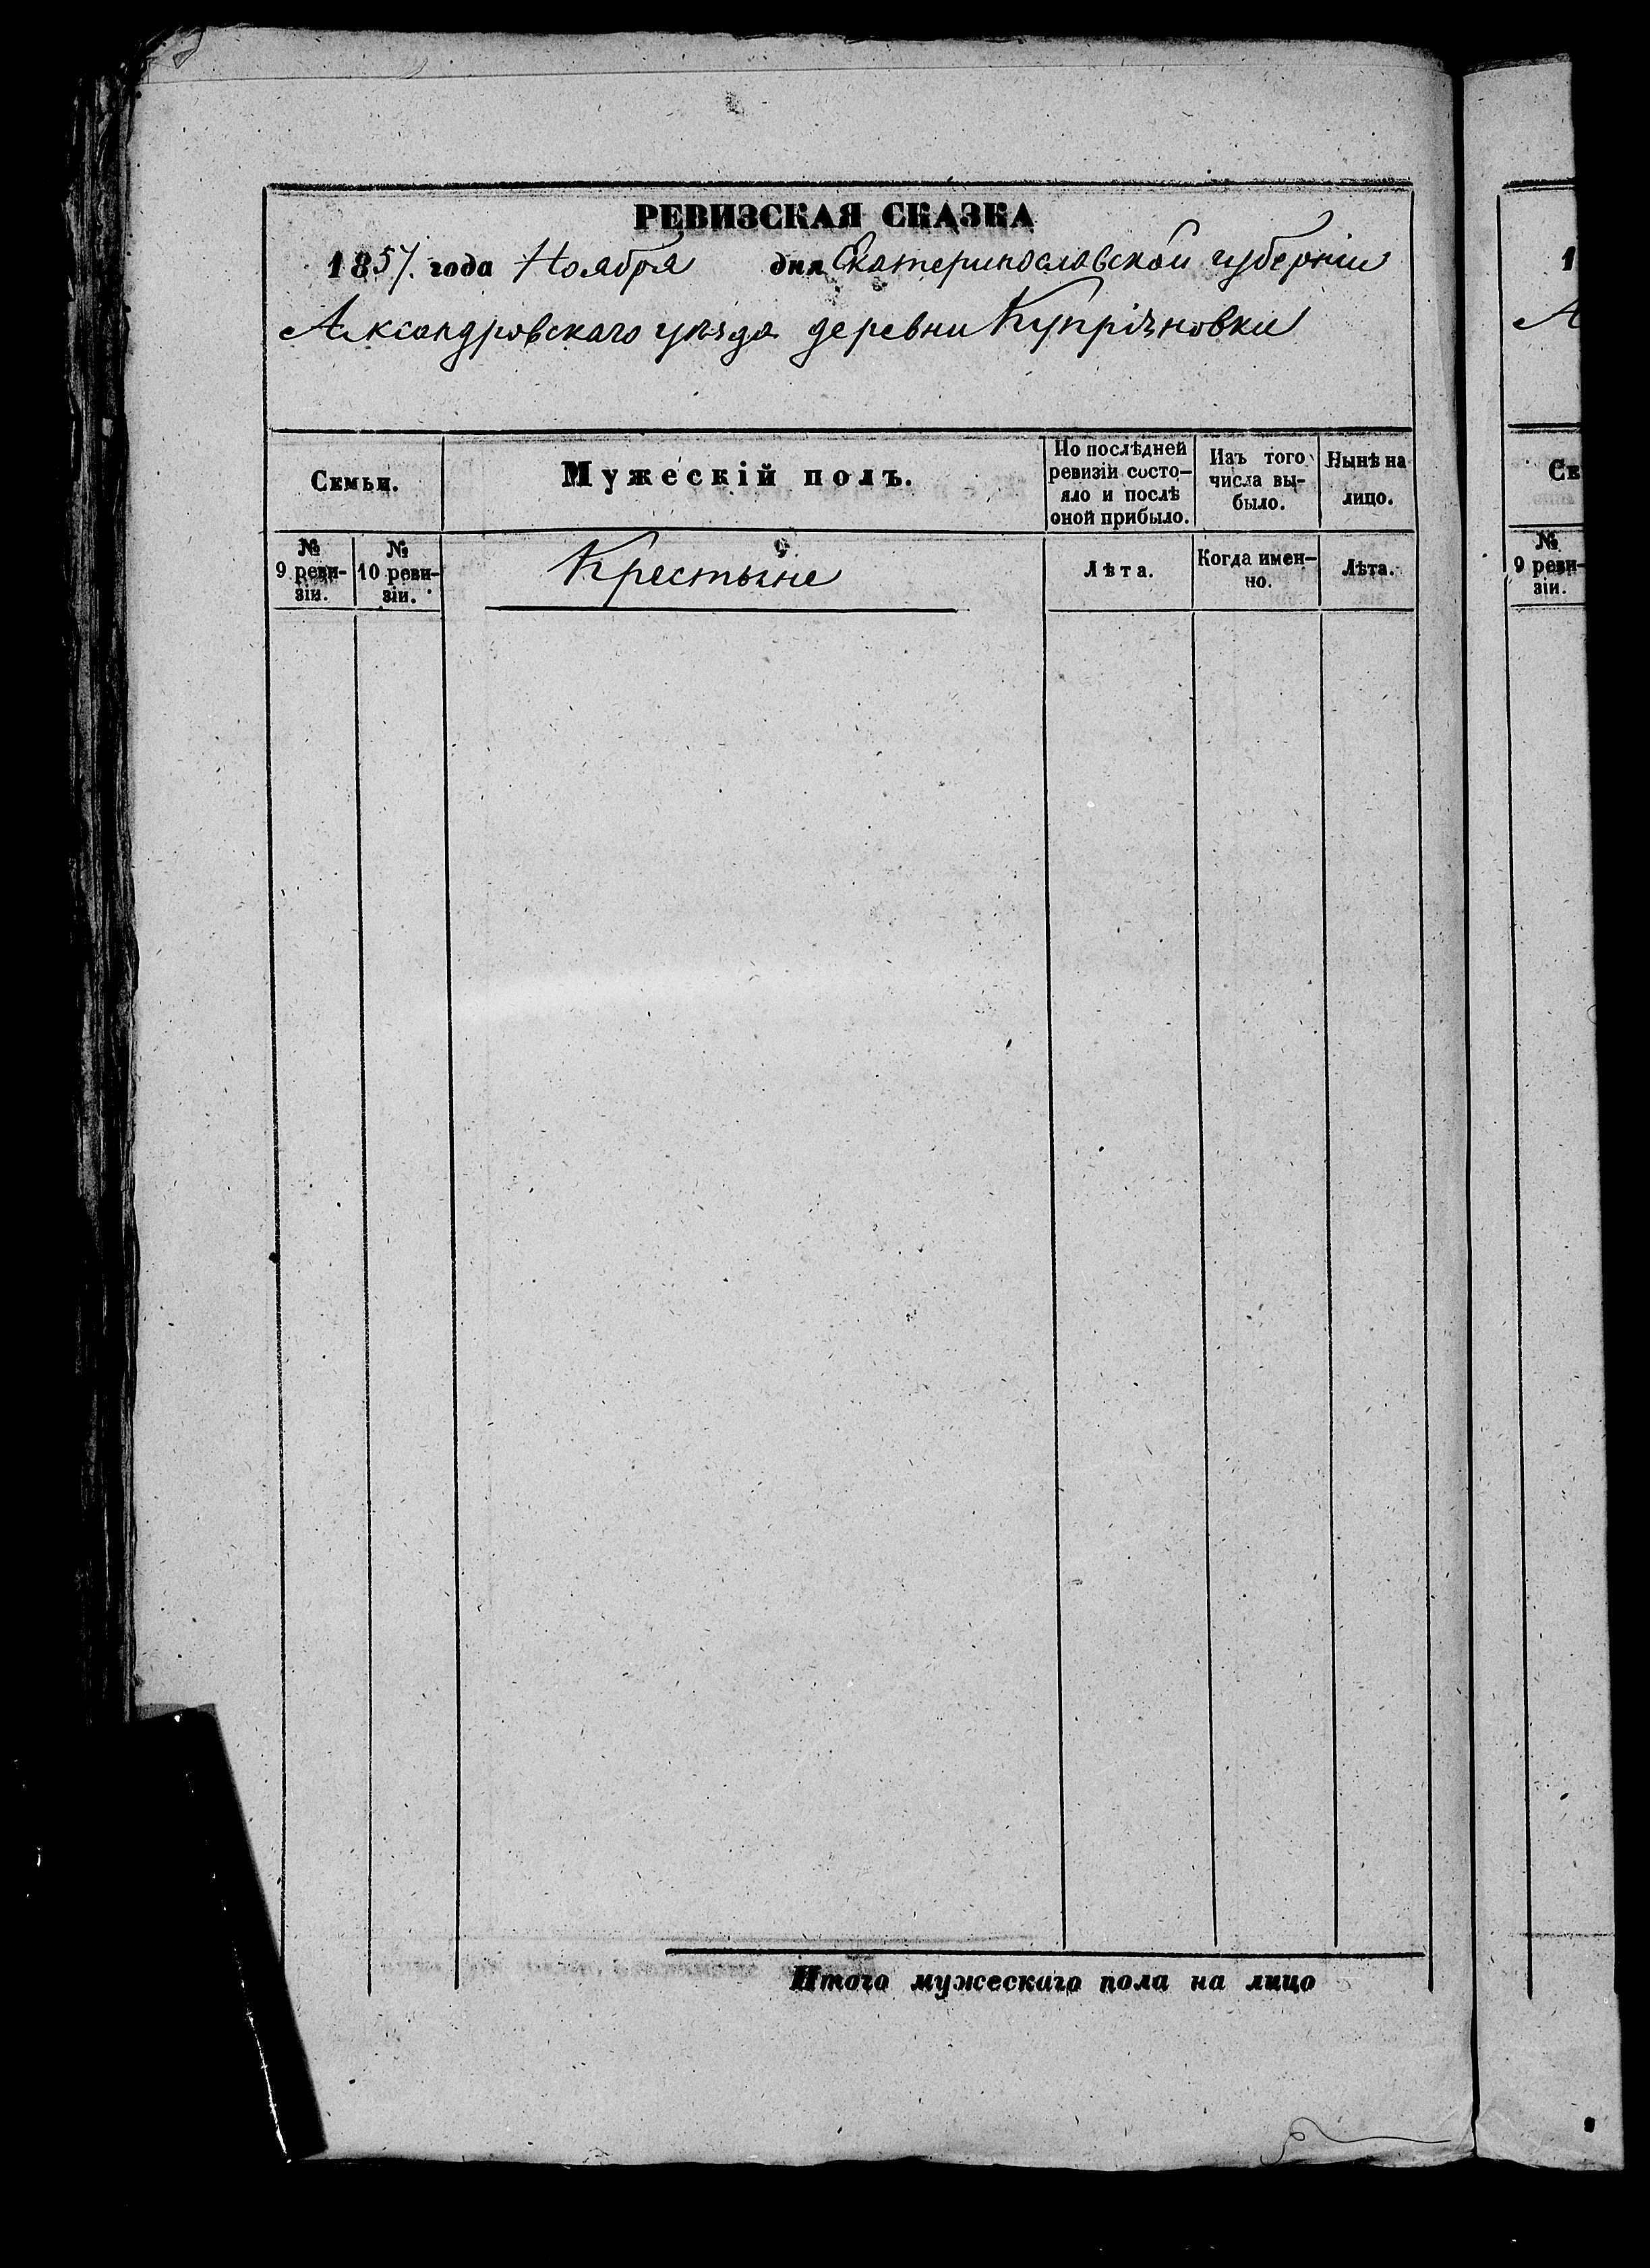 РЕВИЗСКАЯ СКАЗКА
1857. года Ноября дня Екатеринославской губерніи
Алксандровскаго уѣзда деревни Купріяновки
Семьи.
Мужескій полъ.
По послѣдней
ревизіи состо-
яло и послѣ
оной прибыло.
Изъ того
числа вы-
было.
Нынѣ на
лицо.
№
9 реви-
зіи.
№
10 реви-
зіи.
Крестьяне
Лѣта.
Когда имен-
но.
Лѣта.
Итого мужескаго пола на лицо
1
А
Се
№
9 реви-
зіи.